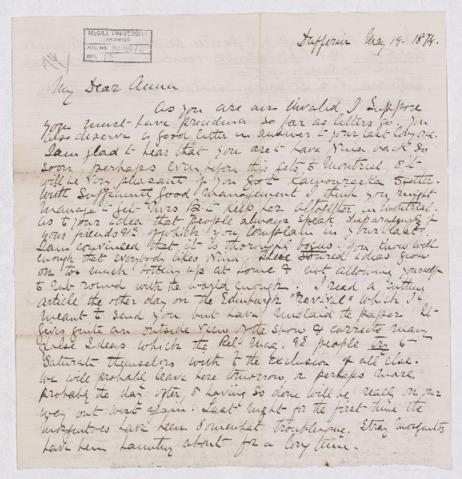 McGILL UNIVERSITY
ARCHIVES
ACC. NO.
REF.
Dufferin May 19. 1874.
My Dear Anna
As you are an invalid I suppose
you must have precedence so far as letters go. You
also deserve a good letter in answer to your last
I am glad to hear that you are to have Nina back so
soon, perhaps even before this gets to Montreal, & it
will be very pleasant if you go to
With sufficiently good management I think you might
manage to get Mrs to keep her altogether in
As to your idea that people always speak disparagingly of
your friends &c of which you complain in your last,
I am convinced that it is thorough bogus. You know well
enough that everybody likes Nina. These ideas grow
on to much bottling up at home & not allowing yourself
to rub round with the world enough. I read a cutting
article the other day on the Edinburgh "Revival" which I
meant to send you but have mislaid the paper. It
gives quite an outside view of the show & corrects many
false ideas which the Rel. Mag. &c people are to
saturate themselves with to the exclusion of all else.
We will probably leave here tomorrow, or perhaps more
probably the day after, & having so done will be really on our
way out west again. Last night for the first time the
mosquitoes have been somewhat troublesome. Stray mosquitos
have been haunting about for a long time.